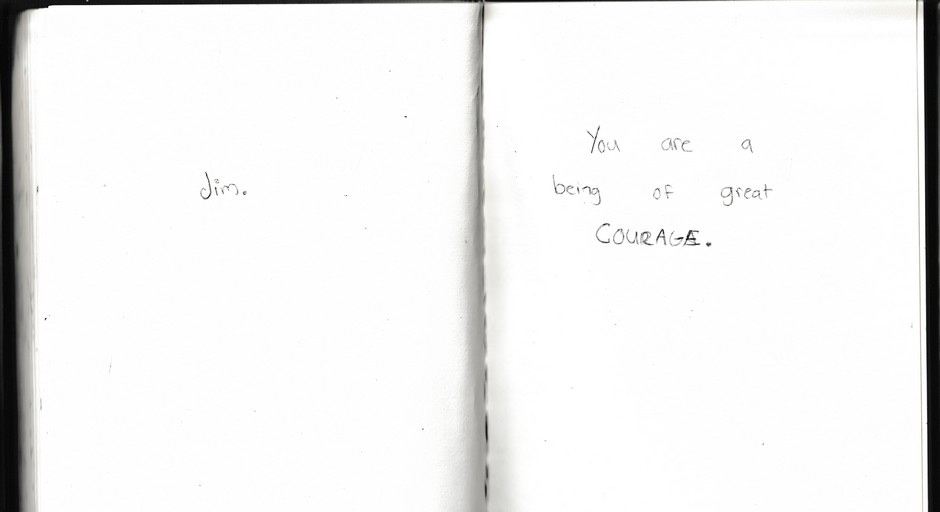 Jim.
You are a
being of great
COURAGE.